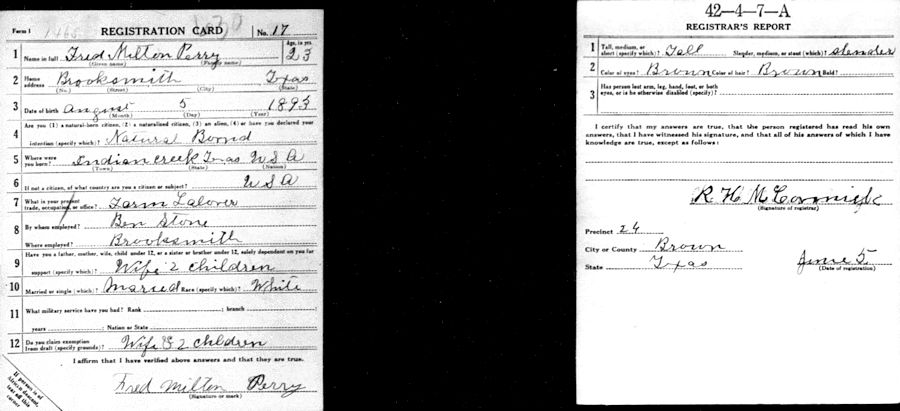 Form 1 1465 REGISTRATION CARD No. 17
1 Name in full Fred Milton Perry Age, in yrs. 23
(Given name) (Family name)
2 Home address Brooksmith Texas
(No.) (Street) (City) (State)
3 Date of birth August 5 1893
(Month) (Day) (Year)
4 Are you (1) a natural-born citizen, (2) a naturalized citizen, (3) an alien, (4) or have you declared your
intention (specify which)? Natural Bornd
5 Where were you born? Indian creek Texas U S A
(Town) (State) (Nation)
6 If not a citizen, of what country are you a citizen or subject? U S A
7 What is your present trade, occupation, or office? Farm Labover
8 By whom employed? Ben Stone
Where employed? Brooksmith
9 Have you a father, mother, wife, child under 12, or a sister or brother under 12, solely dependent on you for
support (specify which)? Wife 2 children
10 Married or single (which)? Maried Race (specify which)? White
11 What military service have you had? Rank ; branch
years ; Nation or State
12 Do you claim exemption from draft (specify grounds)? Wife & 2 children
I affirm that I have verified above answers and that they are true.
Fred Milton Perry
(Signature or mark)
If person is of African descent, tear off this corner
42-4-7-A
REGISTRAR'S REPORT
1 Tall, medium, or short (specify which)? Tall Slender, medium, or stout (which)? slender
2 Color of eyes? Brown Color of hair? Brown Bald?
3 Has person lost arm, leg, hand, foot, or both eyes, or is he otherwise disabled (specify)?
I certify that my answers are true, that the person registered has read his own
answers, that I have witnessed his signature, and that all of his answers of which I
have knowledge are true, except as follows:
R. H. McCormick
(Signature of registrar)
Precinct 24
City or County Brown
State Texas June 5
(Date of registration)